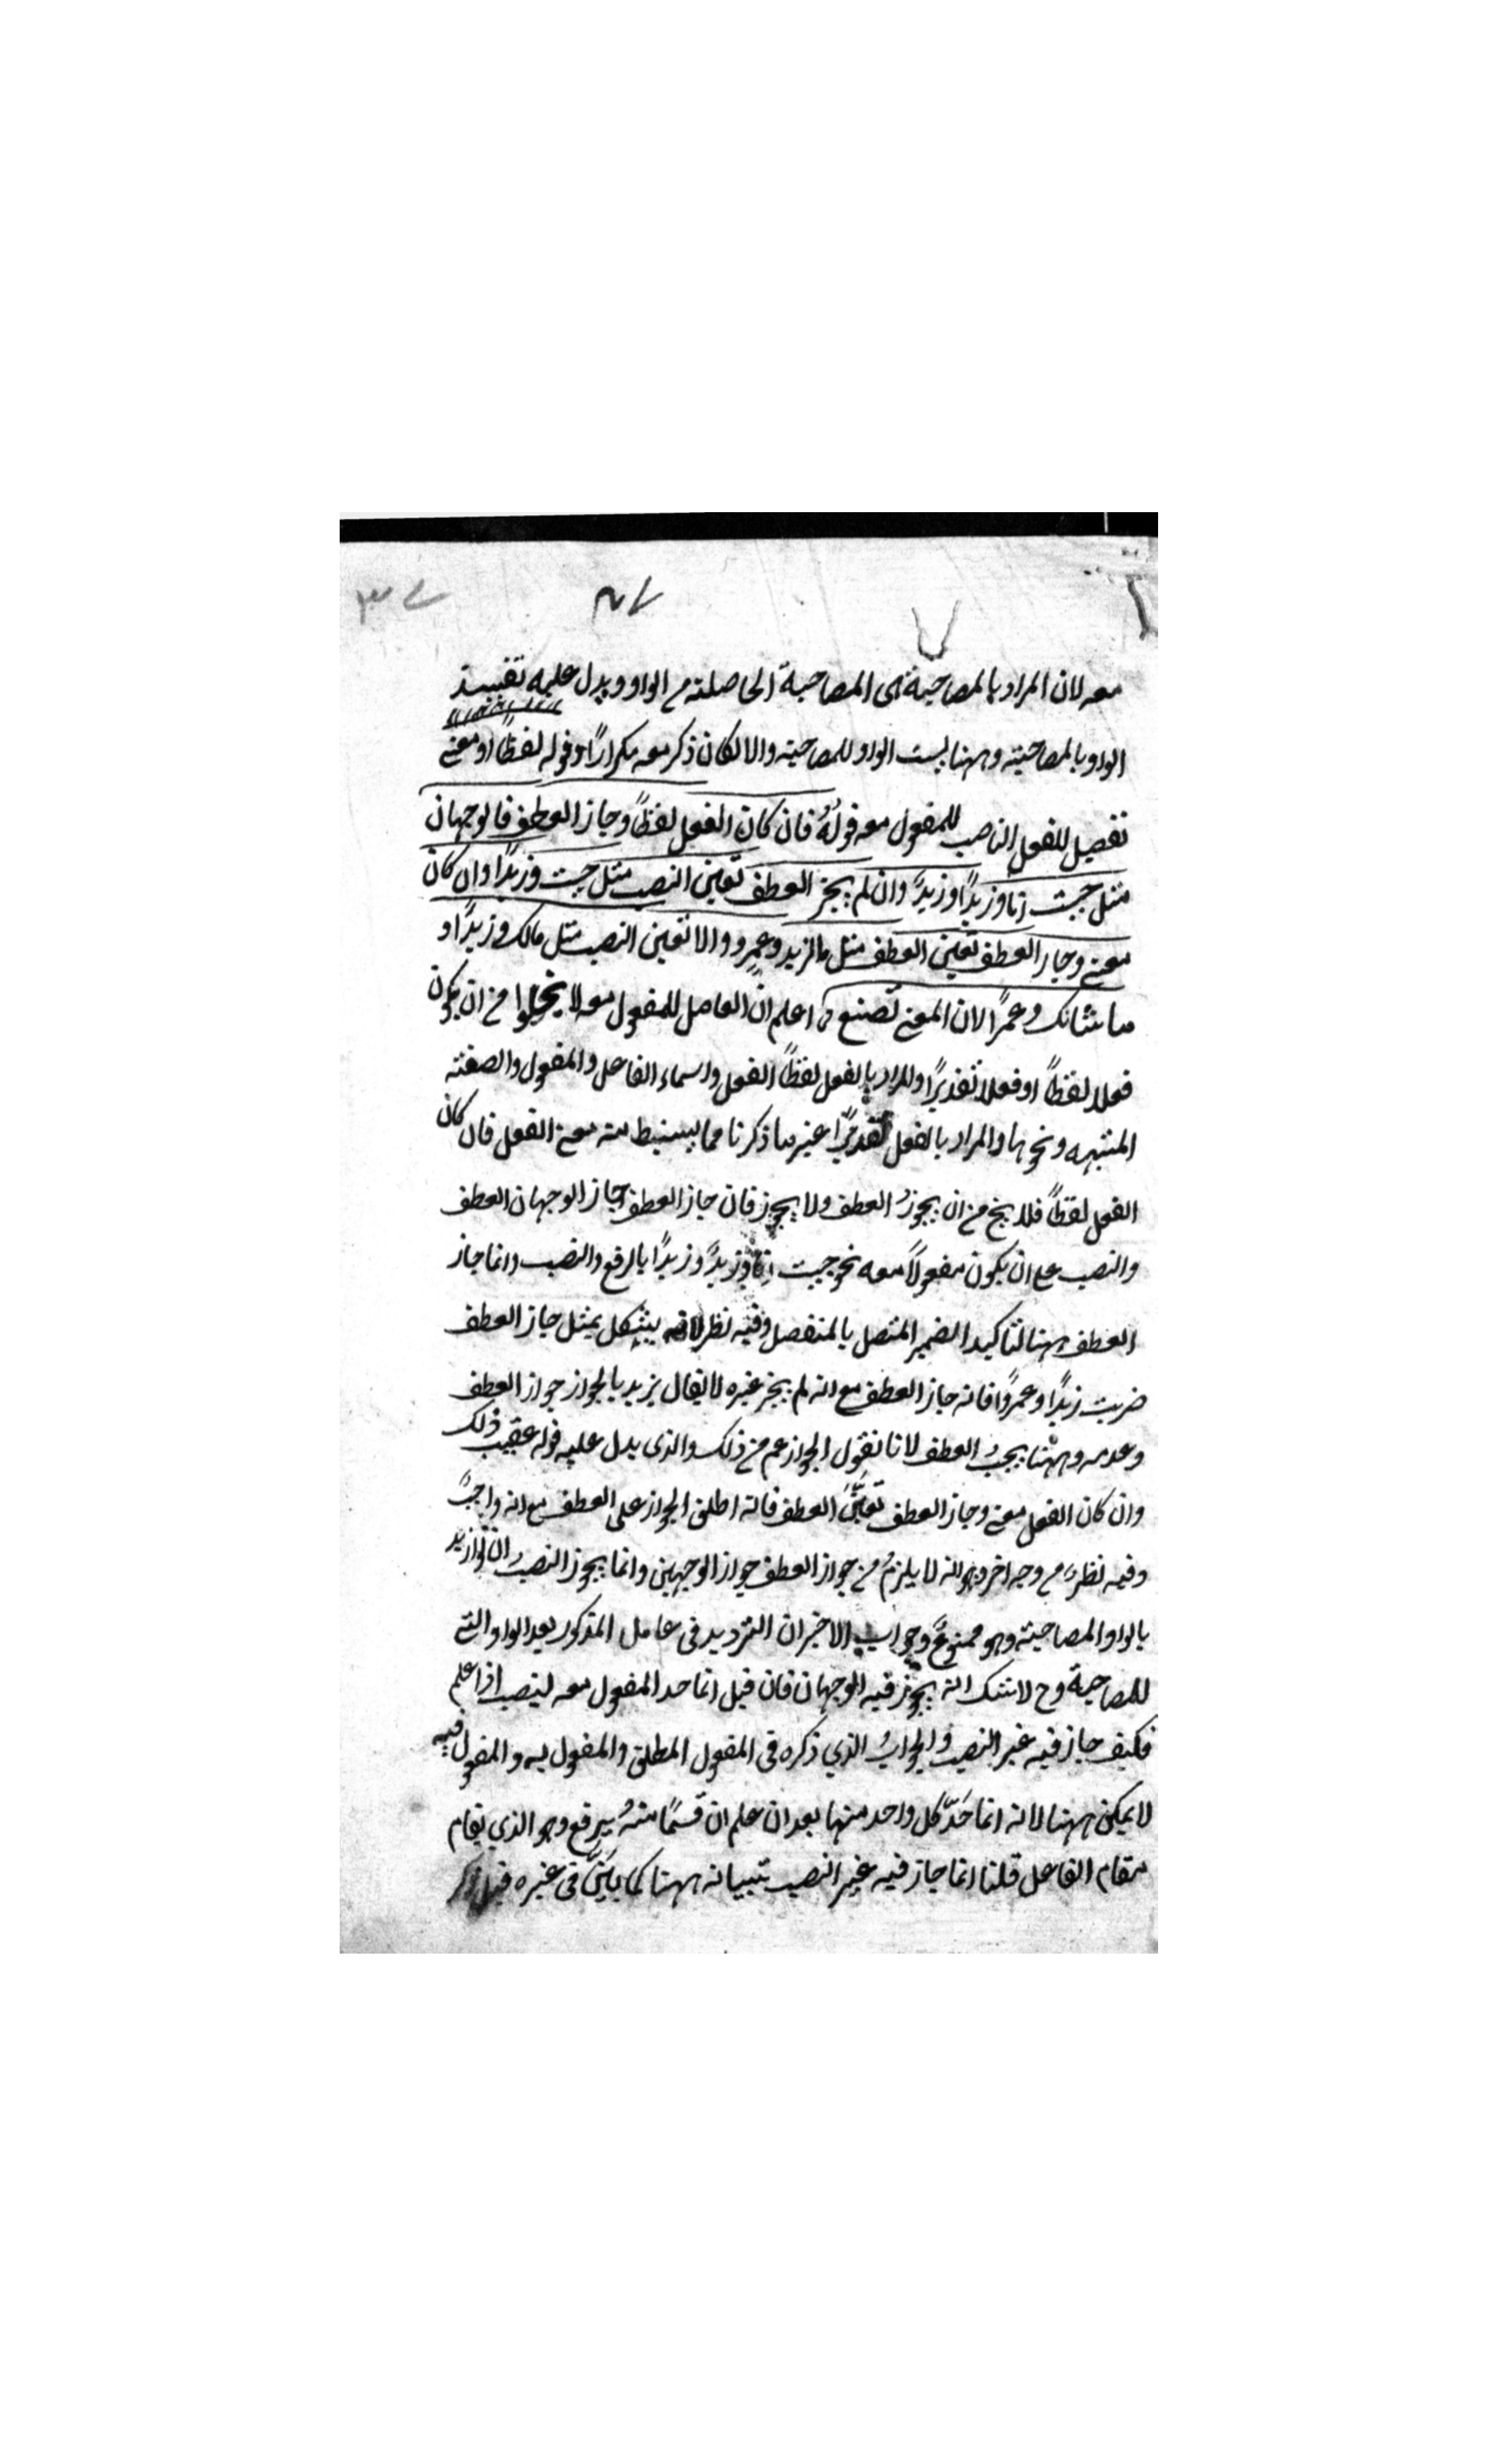 معه لان المراد بالمصاحبة هى المصاحبة الحاصلة من الواو ويدل عليه تفسير
الواو بالمصاحبة وههنا ليست الواو للمصاحبة والا لكان ذكر معه مكرارًا وقوله لفظًا او معنى
تفصيل للفعل الناصب للمفعول معه قولُهُ فان كان الفعل لفظًا وجاز العطف فالوجهان
مثل جئت انا وزيدًا وزيدٌ وان لم يجز العطف تعين النصب مثل جئت وزيدًا وان كان
معنى وجاز العطف تعين العطف مثل ما لزيد وعمرٍو والا تعين النصب مثل مالك وزيدًا و
ما شانك وعمرًا لان المعنى تصنع اعلم انّ العامل للمفعول معه لا يخلوا من ان يكون
فعلا لفظًا او فعلا تقديرًا والمراد بالفعل لفظًا الفعل واسماء الفاعل والمفعول والصفة
المشبهه ونحوها والمراد بالفعل تقديرًا غير ما ذكرنا مما يستنبط منه معنى الفعل فان كان
الفعل لفظًا فلا يخ من ان يجوزُ العطف ولا يجوز فان جاز العطف جاز الوجهان العطف
والنصب على ان يكون مفعولًا معه نحو جئت انا وزيدٌ وزيدًا بالرفع والنصب وانما جاز
العطف ههنا لتاكيد الضمير المتصل بالمنفصل وفيه نظر لانه يشكل بمثل جاز العطف
ضربت زيدًا وعمروًا فانه جاز العطف مع انه لم يجز غيره لا يقال يريد بالجواز جواز العطف
وعدمه وههنا يجبُ العطف لانا نقول الجواز عم من ذلك والذى يدل عليه قوله عقيب ذلك
وان كان الفعل معنى وجاز العطف تعيّنَ العطف فانه اطلق الجواز على العطف مع انه واجبٌ
وفيه نظرٌ من وجه اخر وهو انه لا يلزمُ من جواز العطف جواز الوجهين وانما يجوز النصبُ ان لو ازيد
بالواو المصاحبة وهو ممنوعٌ وجواب الاخير ان الترديد فى عامل المذكور بعد الواو التى
للمصاحبة وح لا شك انه يجوز فيه الوجهان فان قيل انما حد المفعول معه لينصب اذا علم
فكيف جاز فيه غير النصب والجوابُ الذي ذكره فى المفعول المطلق والمفعول به والمفعول فيه
لا يمكن ههنا لانه انما حَدّ كل واحد منها بعد ان علم ان قسمًا منهُ يرفع وهو الذي يقام
مقام الفاعل قلنا انما جاز فيه غير النصب تبيانه ههنا كما بَيَّنَ فى غيره قبل